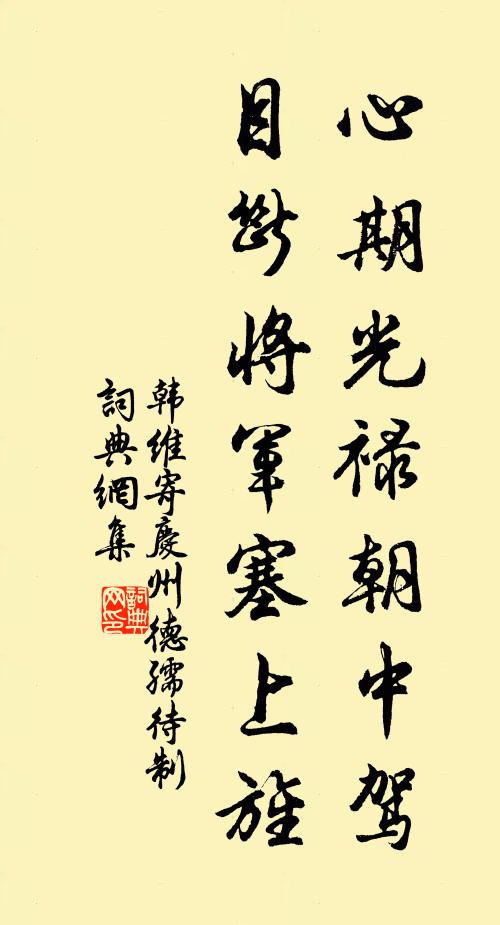 心期光禄朝中驾
目断将军塞上旌
韩维寄慶州德孺待制
詞典網集
詞典网印